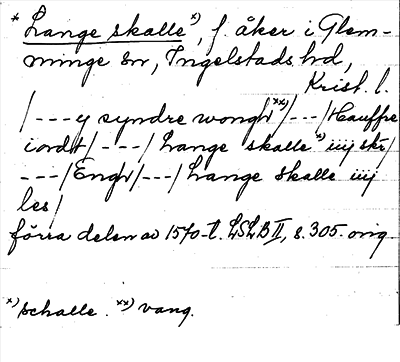 * Lange skalle x), f. åker i Glem-
minge sn, Ingelstads hd,
Krist. l.
/---y syndre wongh xx)/---/Hauffre
iordt/---/Lange skalle x) iiij skr/
---/Engh/---/Lange skalle iiij
les/
förra delen av 1570-t. LSLB II, s. 305. orig.
x) schalle. xx) vang.